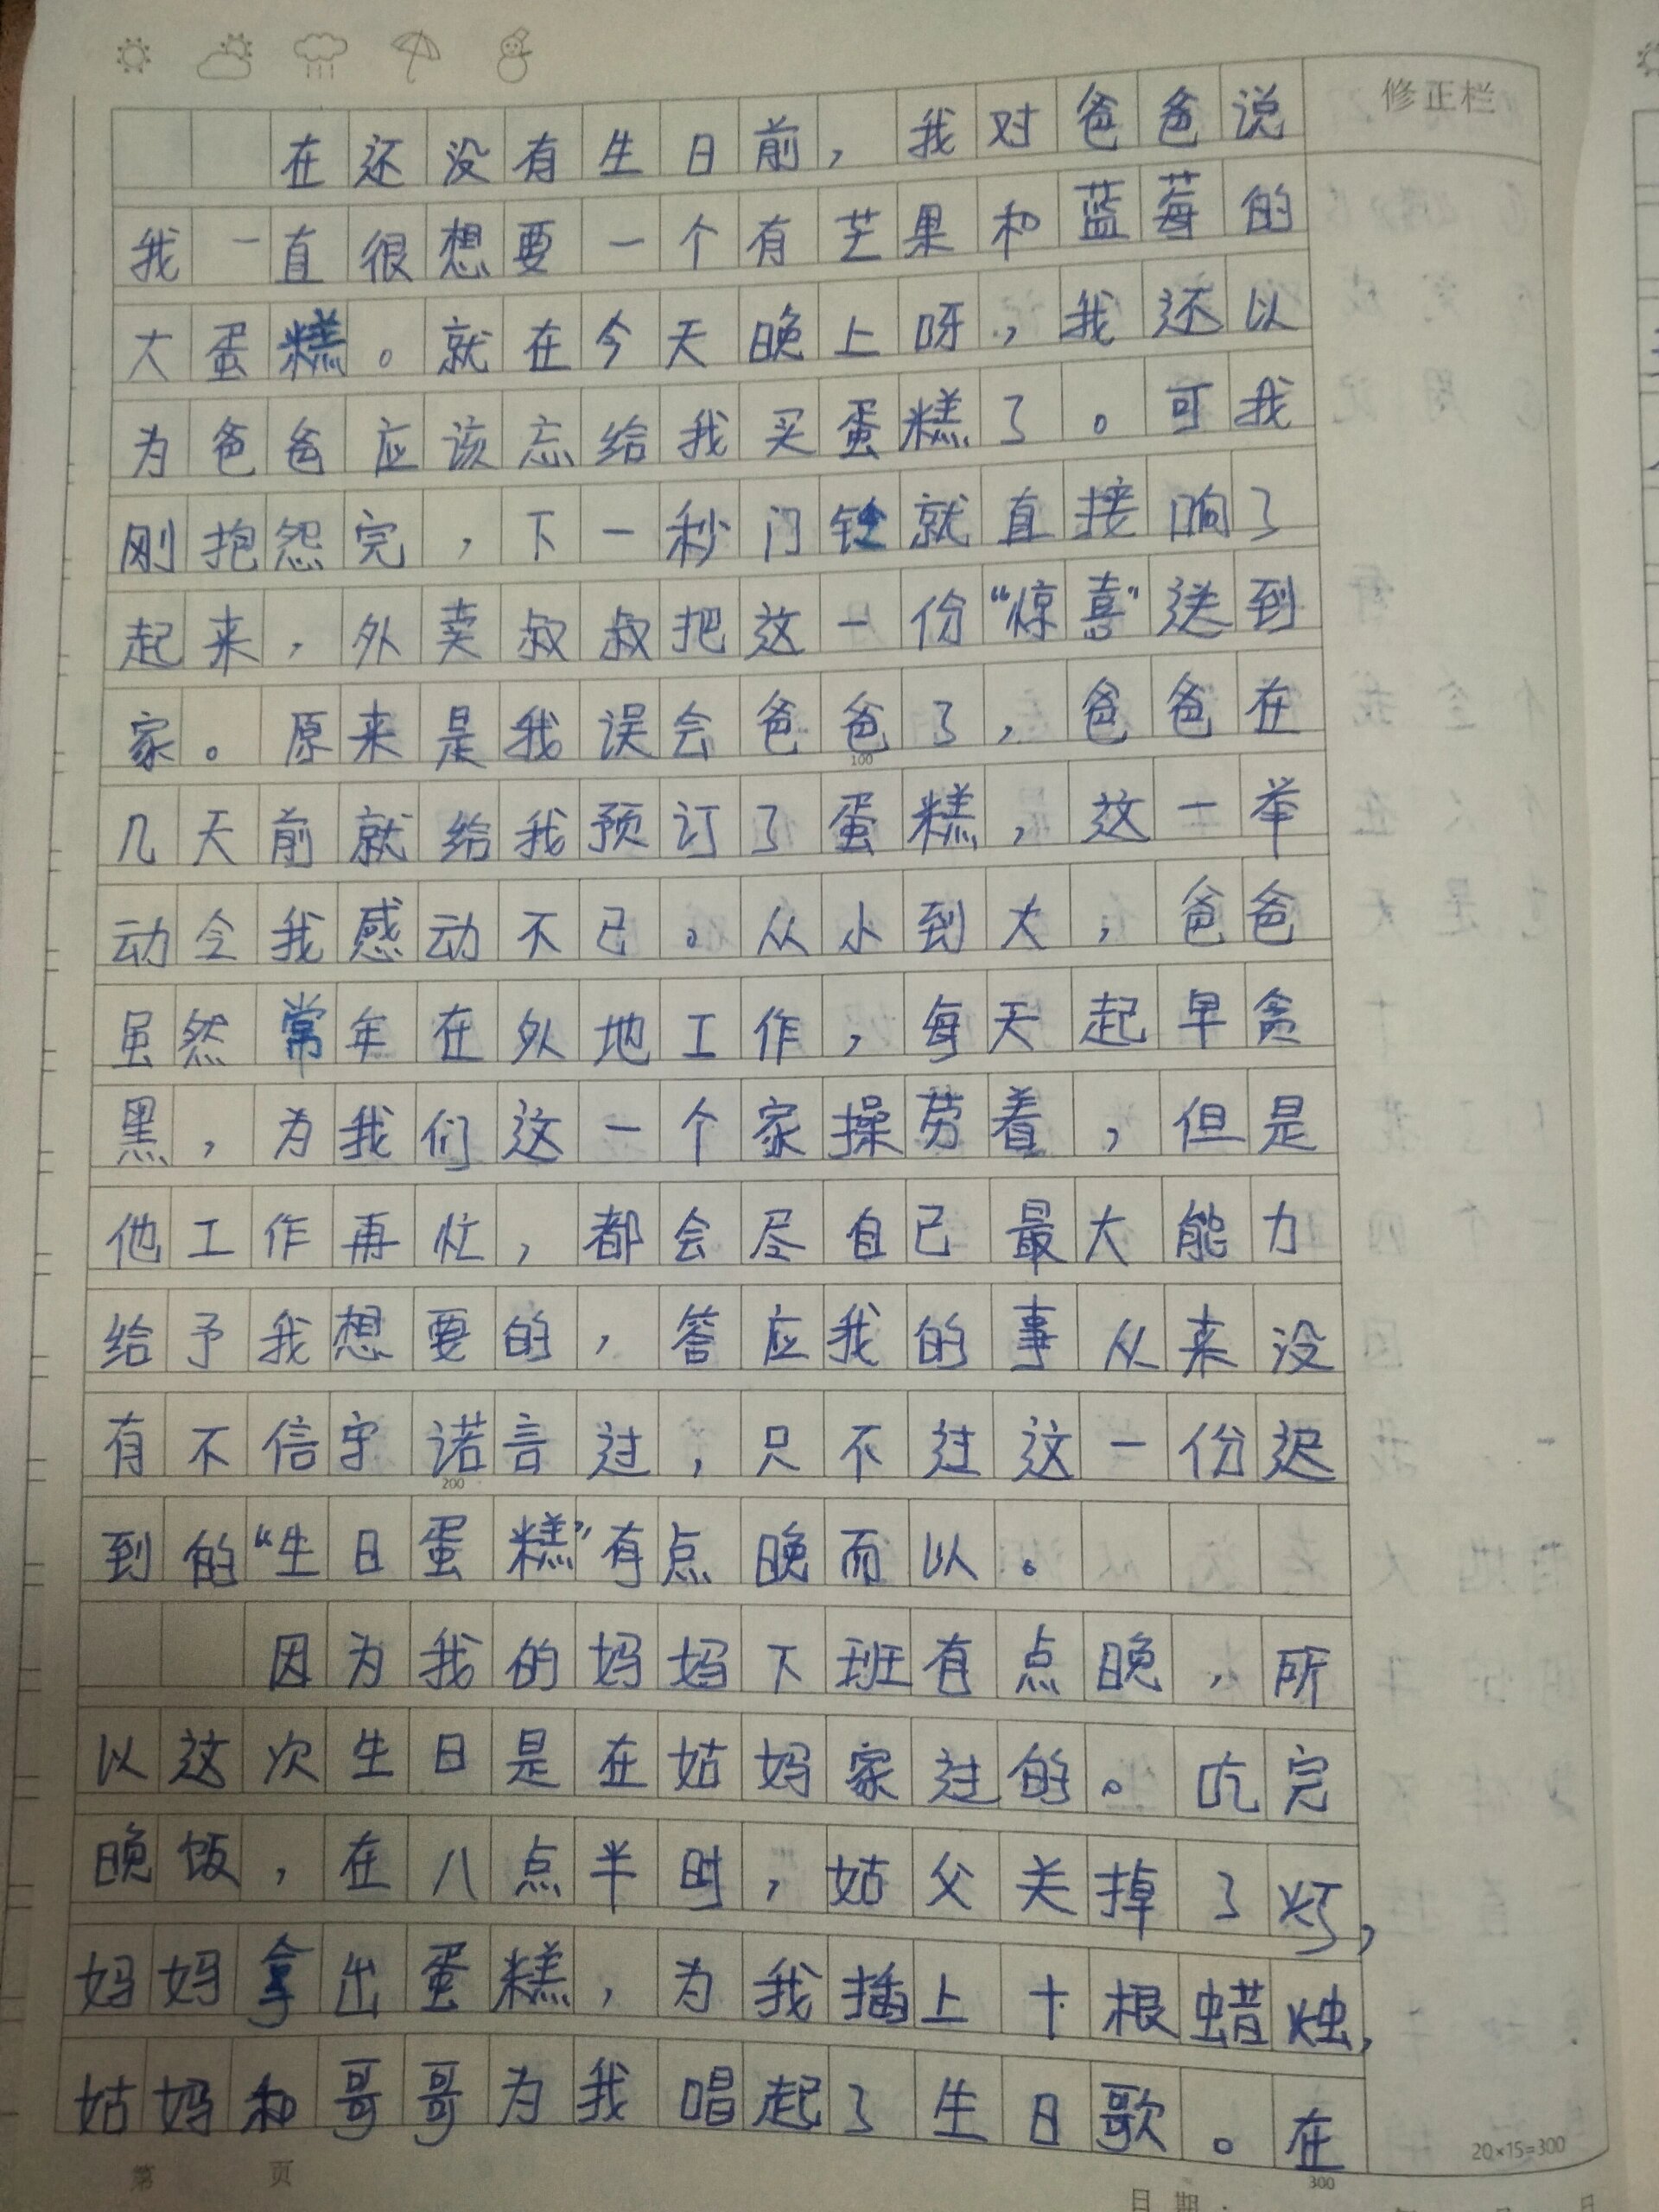 修正栏
在还没有生日前，我对爸爸说
我一直很想要一个有芒果和蓝莓的
大蛋糕。就在今天晚上呀，我还以
为爸爸应该忘给我买蛋糕了。可我
刚抱怨完，下一秒门铃就直接响了
起来，外卖叔叔把这一份“惊喜”送到
家。原来是我误会爸爸了，爸爸在
100
几天前就给我预订了蛋糕，这一举
动令我感动不已。从小到大，爸爸
虽然常年在外地工作，每天起早贪
黑，为我们这一个家操劳着，但是
他工作再忙，都会尽自己最大能力
给予我想要的，答应我的事从来没
有不信守诺言过，只不过这一份迟
200
到的“生日蛋糕”有点晚而以。
因为我的妈妈下班有点晚，所
以这次生日是在姑妈家过的。吃完
晚饭，在八点半时，姑父关掉了灯，
妈妈拿出蛋糕，为我插上十根蜡烛，
姑妈和哥哥为我唱起了生日歌。在
20×15=300
第 页
300
日期：